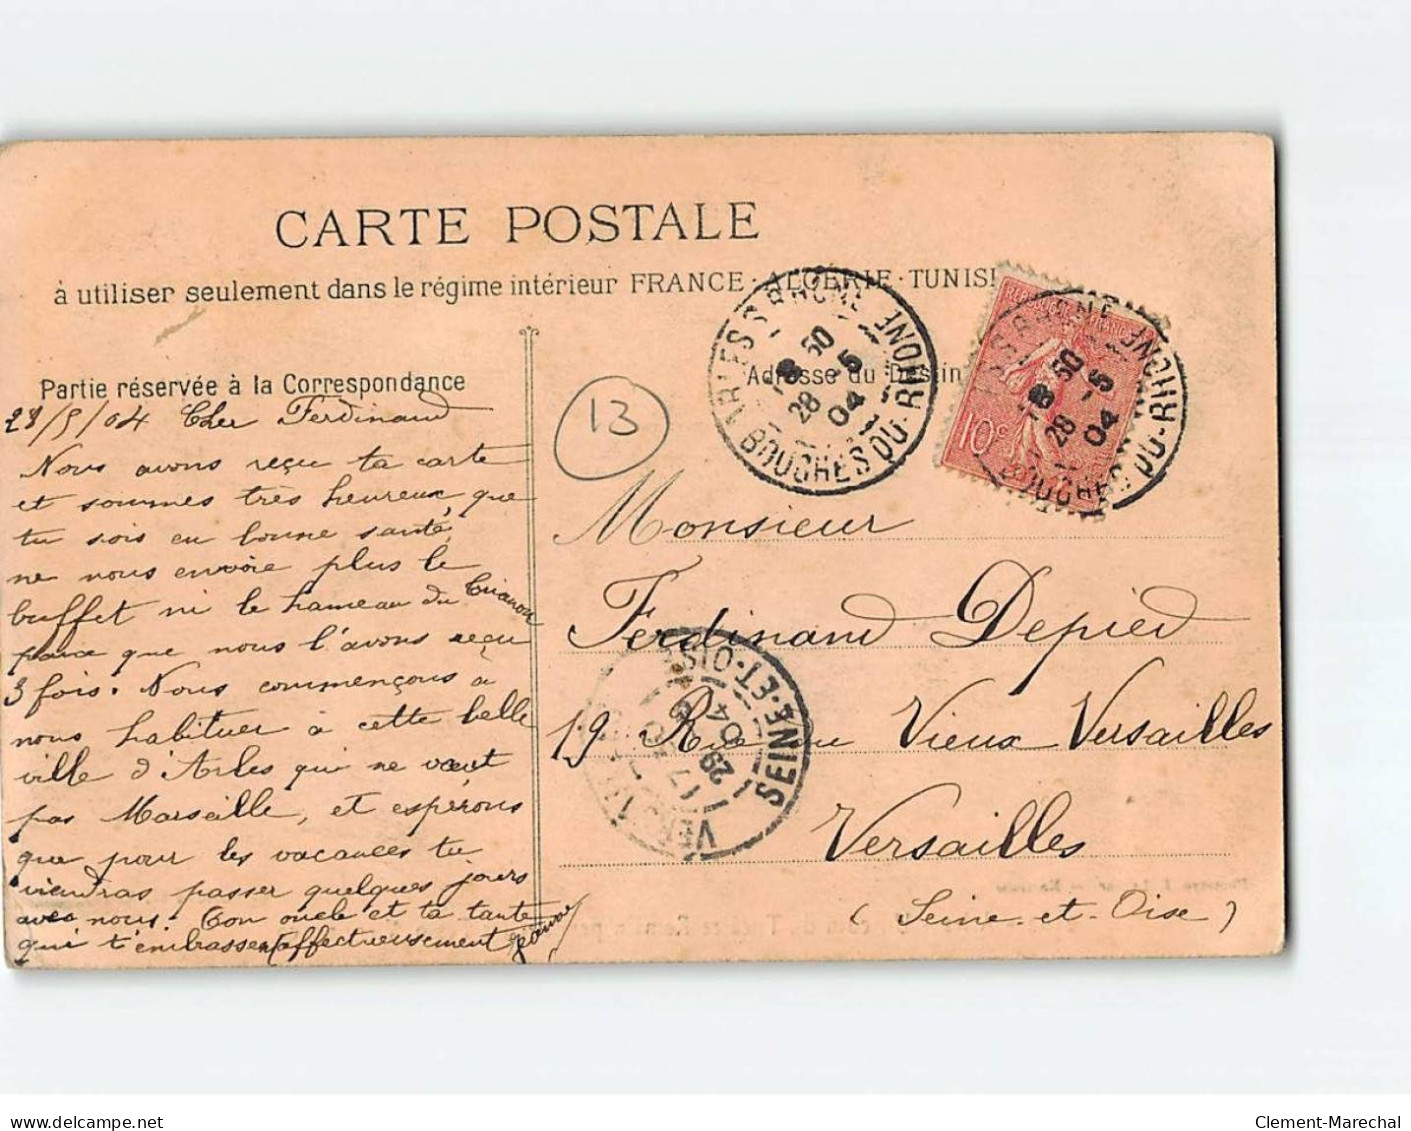 CARTE POSTALE
à utiliser seulement dans le régime intérieur FRANCE · ALGÉRIE · TUNISI
Partie réservée à la Correspondance
Adresse du Destin
28/5/04 Cher Ferdinand
Nous avons reçu ta carte
et sommes très heureux que
tu sois en bonne santé,
ne nous envoie plus le
buffet ni le hameau du Trianon
parce que nous l'avons reçu
3 fois. Nous commençons à
nous habituer à cette belle
ville d'Arles qui ne vaut
pas Marseille, et espérons
que pour les vacances tu
viendras passer quelques jours
avec nous. Ton oncle et ta tante
qui t'embrassent affectueusement
13
ARLES S RHONE
8 50
28 -5
04
BOUCHES DU-RHONE
REPUBLIQUE FRANCAISE
10c
S RHONE
8 50
28 -5
04
BOUCHES DU-RHONE
Monsieur
Ferdinand Depied
19 Rue du Vieux Versailles
Versailles
(Seine-et-Oise)
SEINE-ET-OISE
17
29
04
Clement-Marechal
delcampe.net